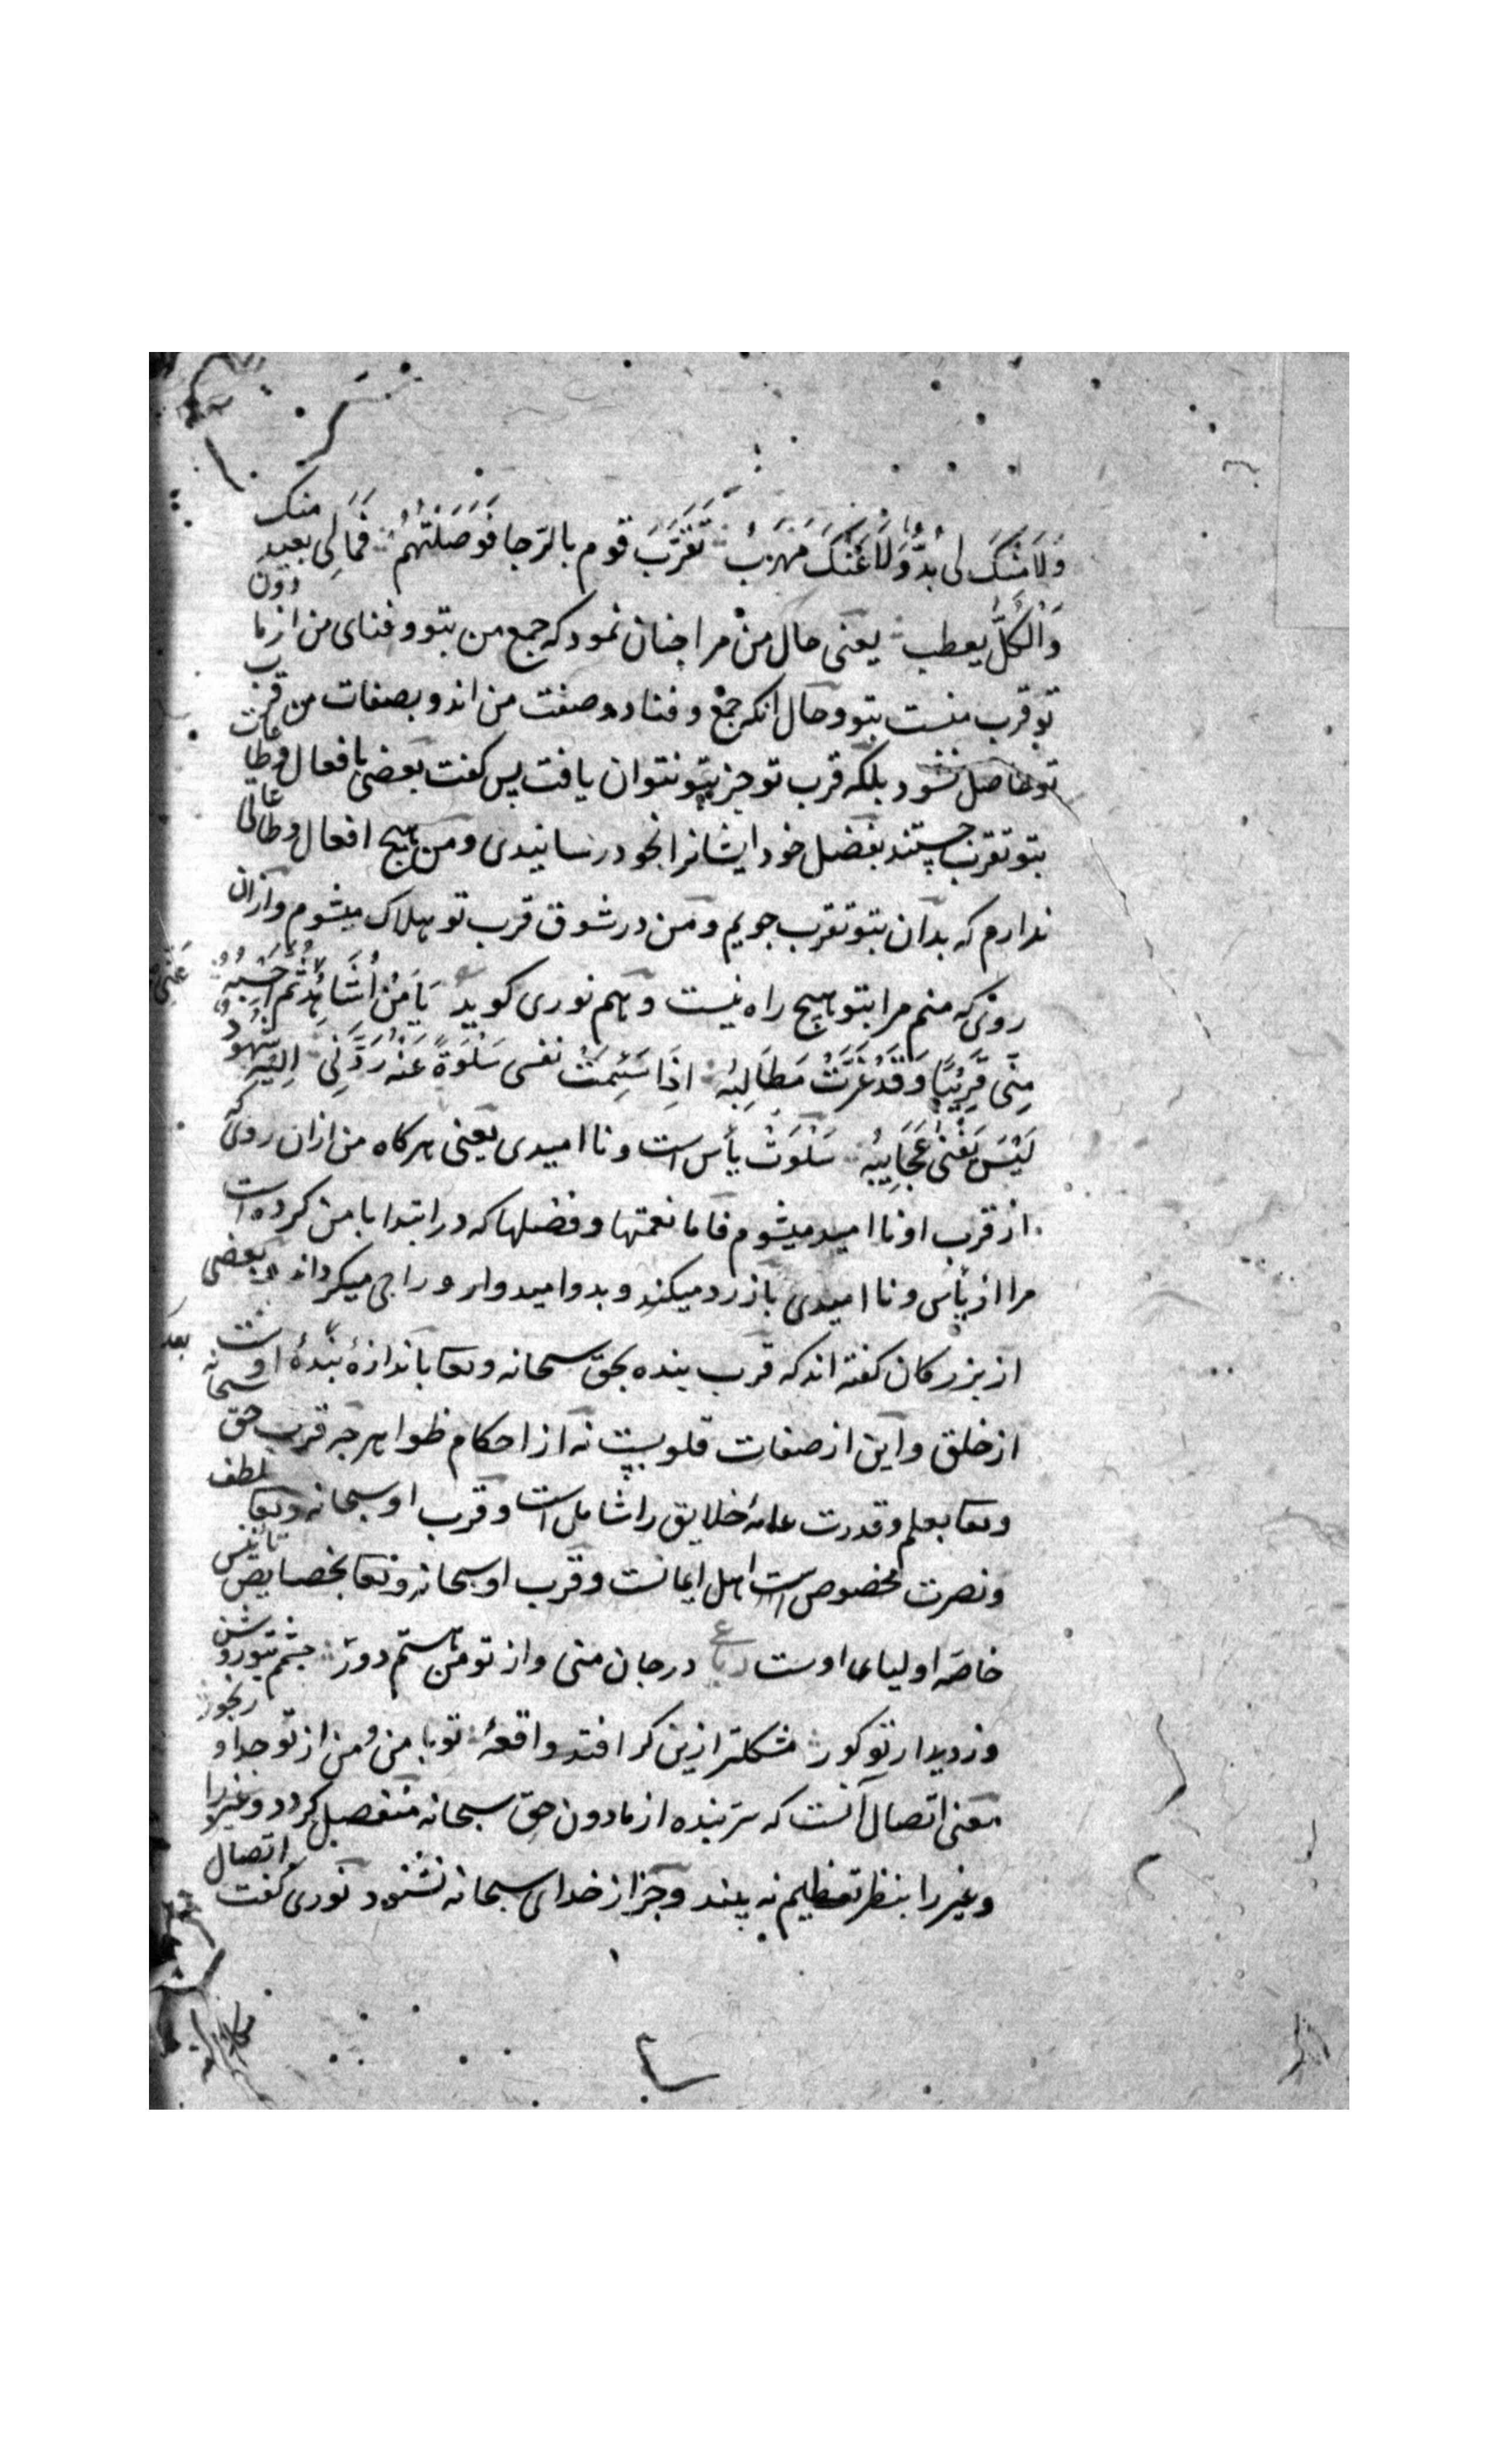 وَلَا مِنْکَ لی بُدٌّ وَلَا عَنْکَ مَهْرَبُ تَقَرَّبَ قوم بالرّجا فَوَصَلْتَهُمْ فَمَالِی بعید منک
وَالکُلُّ یعطب یعنی حال من مرا چنان نمود که جمع من بتو و فنای من از ما دون
تو قرب منست بتو و حال انکه جمع و فنا دو صفت من اند و بصفات من قرب
تو حاصل نشود بلکه قرب تو جز بتو نتوان یافت پس کفت بعضی بافعال و طاعات
بتو تقرب جستند بفضل خود ایشانرا بخود رسانیدی و من هیچ افعال و طاعا
ندارم که بدان بتو تقرب جویم و من در شوق قرب تو هلاک میشوم و ازان
روی که منم مرا بتو هیچ راه نیست و هم نوری کوید یَا مَنْ اُشَاهِدُهُ ثُمَّ اَحْسِبُهُ عَنِّی
مِنّی قَرِیْبًا وَقَدْ عَزَّتْ مَطَالِبُهُ اِذَا سَئِمَتْ نفسی سَلْوَةً عَنْهُ رَدَّنِی اِلَیْهِ شُهُودٌ
لَیْسَ تَفْنی عَجَایِبُهُ سَلْوَتْ یأس است و ناامیدی یعنی هرکاه من ازان روی که
از قرب او ناامید میشوم فاما نعمتها و فضلها که در ابتدا با من کرده است
مرا از یأس و ناامیدی باز رد میکند و بدو امیدوار و راجی میکرداند و بعضی
از بزرکان کفته اند که قرب بنده بحق سبحانه وتعا باندازهٔ بعد بندهٔ اوست
از خلق و این از صفات قلوبست نه از احکام ظواهر چه قرب حق سبحانه
وتعا بعلم و قدرت عامهٔ خلایق را شامل است و قرب او سبحانه وتعا بلطف
و نصرت مخصوص است اهل ایمانست و قرب او سبحانه وتعا بخصایص تأنیس
خاصهٔ اولیای اوست رباع در جان منی و از تو من هستم دور چشمم بتو روشن
وز دیدار تو کور مشکلتر ازین کرا فتد واقعهٔ تو با من و من از تو جدا و رنجور
معنی اتصال آنست که سرّ بنده از مادون حق سبحانه منفصل کردد و غیر را
و غیر را بنظر تعظیم نه بیند و جز از خدای سبحانه نشنود نوری کفت اتصال